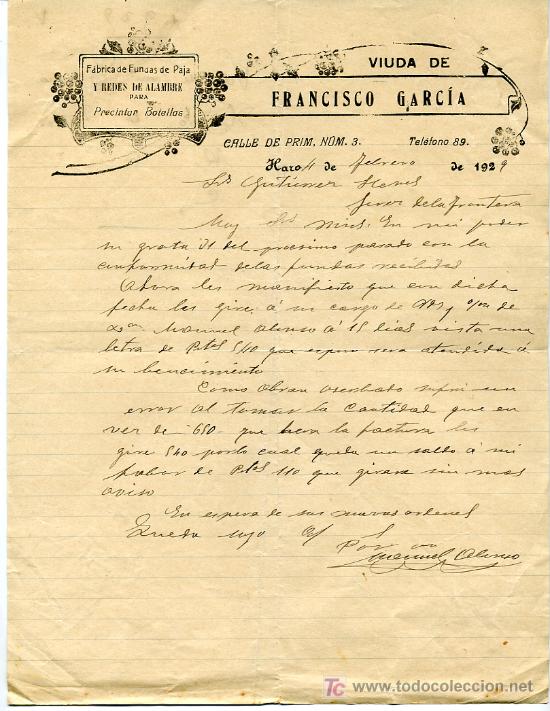 Fábrica de Fundas de Paja
Y REDES DE ALAMBRE
PARA
Precintar Botellas
VIUDA DE
FRANCISCO GARCÍA
CALLE DE PRIM, NÚM. 3.
Teléfono 89.
Haro 4 de febrero de 1929
Srs Gutierrez Hnos
Jerez de la frontera
Muy mios: En mi poder
su grata 31 del proximo pasado con la
conformidad de las fundas recibidas
Ahora les manifiesto que con dicha
fecha les gire á su cargo de Vds y o/ de
Manuel Alonso á 15 dias vista una
letra de Ptas 540 que espero sera atendida á
su bencimiento
Como abran oserbado sufri un
error al tomar la cantidad que en
vez de 650 que hera la factura les
gire 540 por lo cual queda un saldo á mi
fabor de Ptas 110 que girare sin mas
aviso
En espera de sus nuevas ordenes
Queda suyo
Manuel Alonso
TC www.todocoleccion.net